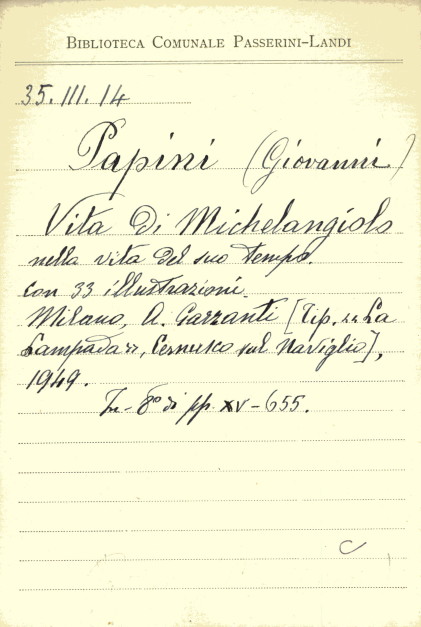 BIBLIOTECA COMUNALE PASSERINI-LANDI
35.III.14
Papini (Giovanni)
Vita di Michelangiolo
nella vita del suo tempo.
con 33 illustrazioni.
Milano, A. Garzanti [Tip. "La
Lampada", Cernusco sul Naviglio],
1949.
In-8° di pp. XV-655.
C